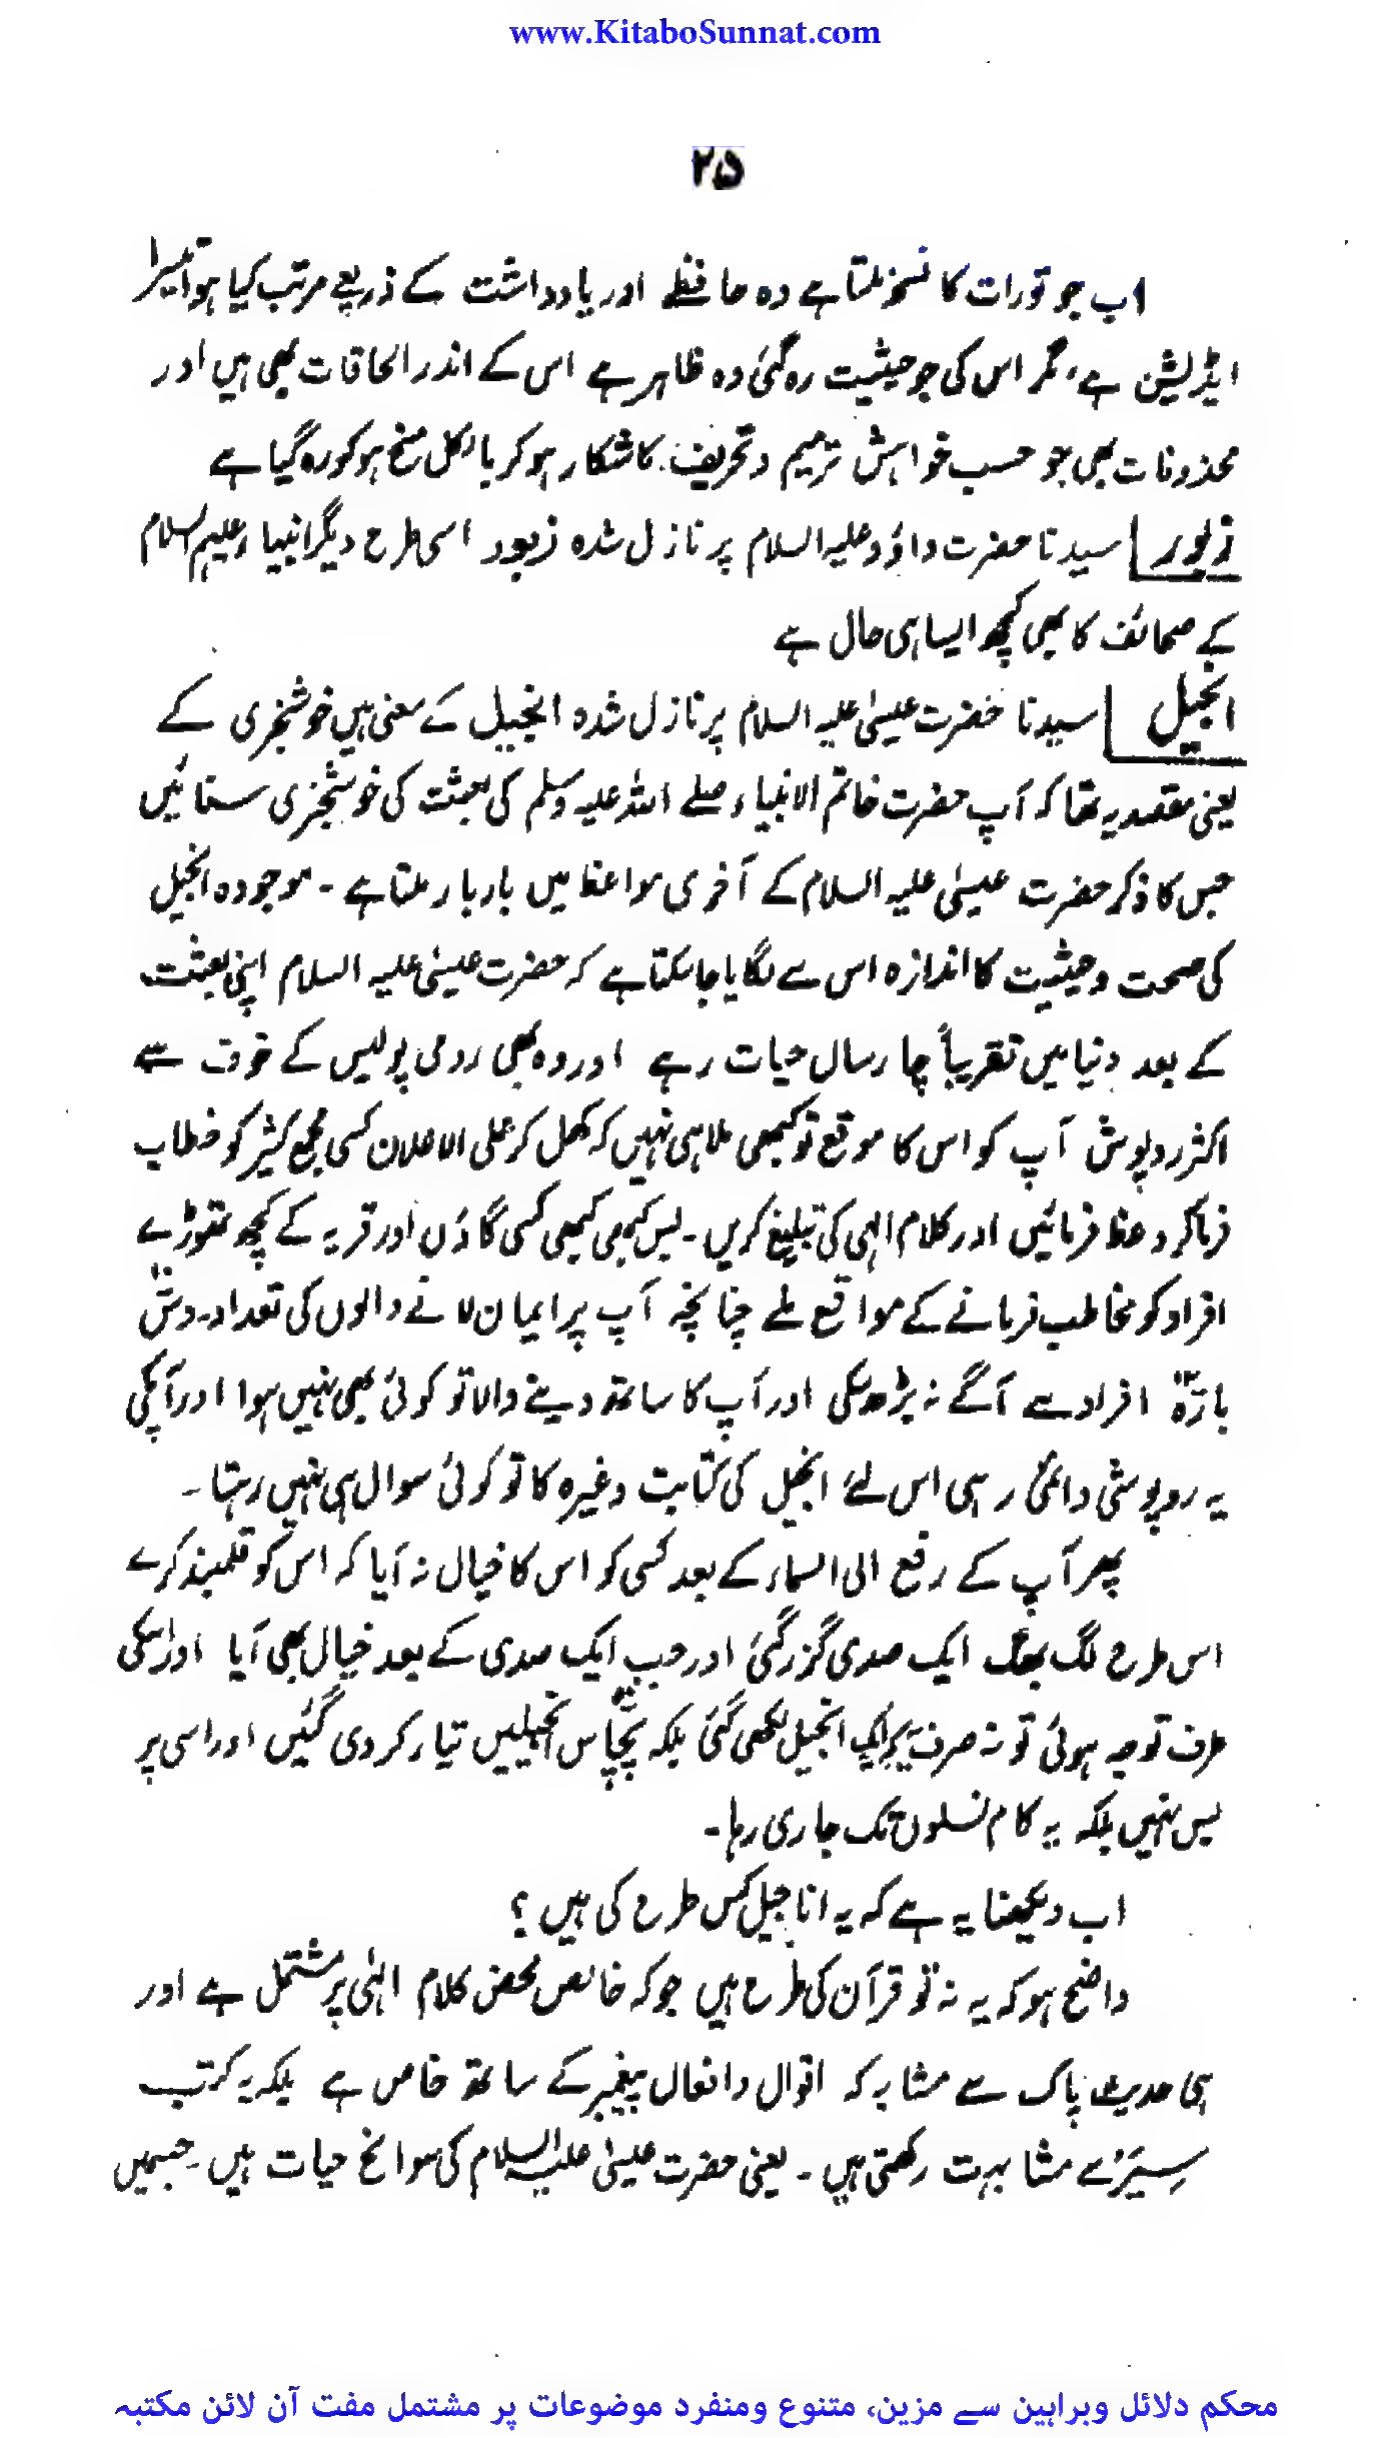 www.KitaboSunnat.com
۲۵
اب جو تورات کا نسخہ ملتا ہے وہ حافظے اور یادداشت کے ذریعے مرتب کیا ہوا تیسرا
ایڈیشن ہے، مگر اس کی جو حیثیت رہ گئی وہ ظاہر ہے اس کے اندر الحاقات بھی ہیں اور
محذوفات بھی جو حسب خواہش ترمیم و تحریف کا شکار ہو کر بالکل مسخ ہو کر رہ گیا ہے
زبور | سیدنا حضرت داؤد علیہ السلام پر نازل شدہ زبور اسی طرح دیگر انبیاء علیہم السلام
کے صحائف کا بھی کچھ ایسا ہی حال ہے
انجیل | سیدنا حضرت عیسیٰ علیہ السلام پر نازل شدہ انجیل کے معنی ہیں خوشخبری کے
یعنی مقصد یہ تھا کہ آپ حضرت خاتم الانبیاء صلے اللہ علیہ وسلم کی بعثت کی خوشخبری سنائیں
جس کا ذکر حضرت عیسیٰ علیہ السلام کے آخری مواعظ میں بار بار ملتا ہے ۔ موجودہ انجیل
کی صحت و حیثیت کا اندازہ اس سے لگایا جا سکتا ہے کہ حضرت عیسیٰ علیہ السلام اپنی بعثت
کے بعد دنیا میں تقریباً چار سال حیات رہے اور وہ بھی رومی پولیس کے خوف سے
اکثر روپوش آپ کو اس کا موقع تو کبھی ملا ہی نہیں کہ کھل کر علی الاعلان کسی مجمع کثیر کو خطاب
فرما کر وعظ فرمائیں اور کلام الہی کی تبلیغ کریں ۔ بس کبھی کبھی کسی گاؤں اور قریہ کے کچھ تھوڑے
افراد کو مخاطب فرمانے کے مواقع ملے چنانچہ آپ پر ایمان لانے والوں کی تعداد دس
بارہ افراد سے آگے نہ بڑھ سکی اور آپ کا ساتھ دینے والا تو کوئی بھی نہیں ہوا اور آپکی
یہ روپوشی دائمی رہی اس لئے انجیل کی کتابت وغیرہ کا تو کوئی سوال ہی نہیں رہتا ۔
پھر آپ کے رفع الی السماء کے بعد کسی کو اس کا خیال نہ آیا کہ اس کو قلمبند کرے
اس طرح لگ بھگ ایک صدی گزر گئی اور جب ایک صدی کے بعد خیال بھی آیا اور اسکی
طرف توجہ ہوئی تو نہ صرف یہ کہ ایک انجیل لکھی گئی بلکہ پچاس انجیلیں تیار کر دی گئیں اور اسی پر
بس نہیں بلکہ یہ کام نسلوں تک جاری رہا ۔
اب دیکھنا یہ ہے کہ یہ اناجیل کس طرح کی ہیں ؟
واضح ہو کہ یہ نہ تو قرآن کی طرح ہیں جو کہ خالص محض کلام الہٰی پر مشتمل ہے اور
ہی حدیث پاک سے مشابہ کہ اقوال و افعال پیغمبر کے ساتھ خاص ہے بلکہ یہ کتب
سِیَرْ سے مشابہت رکھتی ہیں ۔ یعنی حضرت عیسیٰ علیہ السلام کی سوانح حیات ہیں ۔ جسمیں
محکم دلائل وبراہین سے مزین، متنوع ومنفرد موضوعات پر مشتمل مفت آن لائن مکتبہ